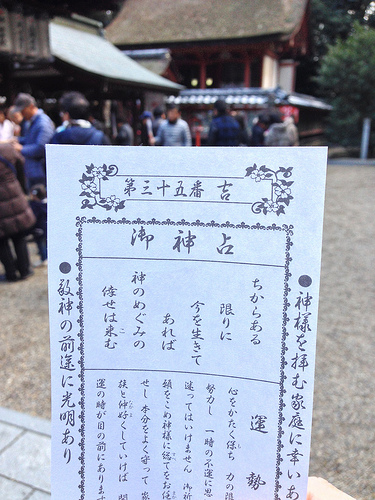 第三十五番 吉
御神占
神様を拝む家庭に幸いあ
ちからある
限りに
今を生きて
あれば
神のめぐみの
倖せは来む
運勢
心をかたく保ち 力の限
努力し 一時の不運に思
迷ってはいけません 御祈
願をこめ神様に総てをお任
せし 本分をよく守って 家
族と仲好くしていけば 開
運の時が目の前にあります
敬神の前途に光明あり